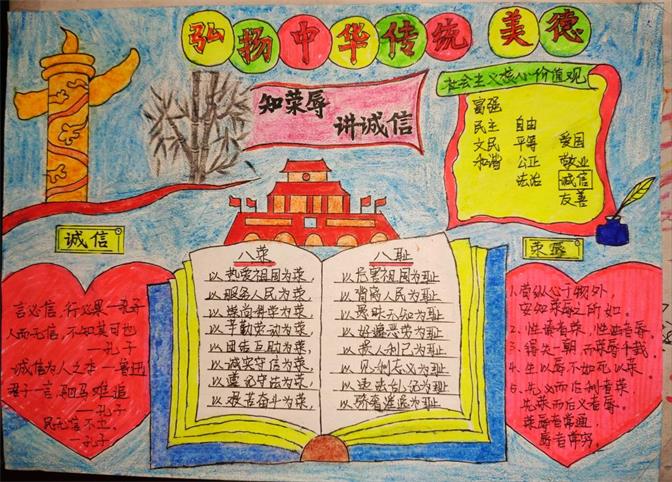 弘扬中华传统美德
知荣辱
讲诚信
社会主义核心价值观
富强
民主
文民
和谐
自由
平等
公正
法治
爱国
敬业
诚信
友善
诚信
言必信，行必果—孔子
人而无信，不知其可也
—孔子
诚信为人之本—鲁迅
君子一言，驷马难追
—孔子
民无信不立
—孔子
八荣
以热爱祖国为荣，
以服务人民为荣，
以崇尚科学为荣，
以辛勤劳动为荣，
以团结互助为荣，
以诚实守信为荣，
以遵纪守法为荣，
以艰苦奋斗为荣，
八耻
以危害祖国为耻
以背离人民为耻
以愚昧无知为耻
以好逸恶劳为耻
以损人利己为耻
以见利忘义为耻
以违法乱纪为耻
以骄奢淫逸为耻
荣辱
1、苟纵心于物外，
安知荣辱之所如。
2、
3、得失一朝，而荣辱千载
4、生以辱不如死以荣
5、先义而后利者荣，
先荣而后义者辱。
荣辱者常通，
辱者常穷。